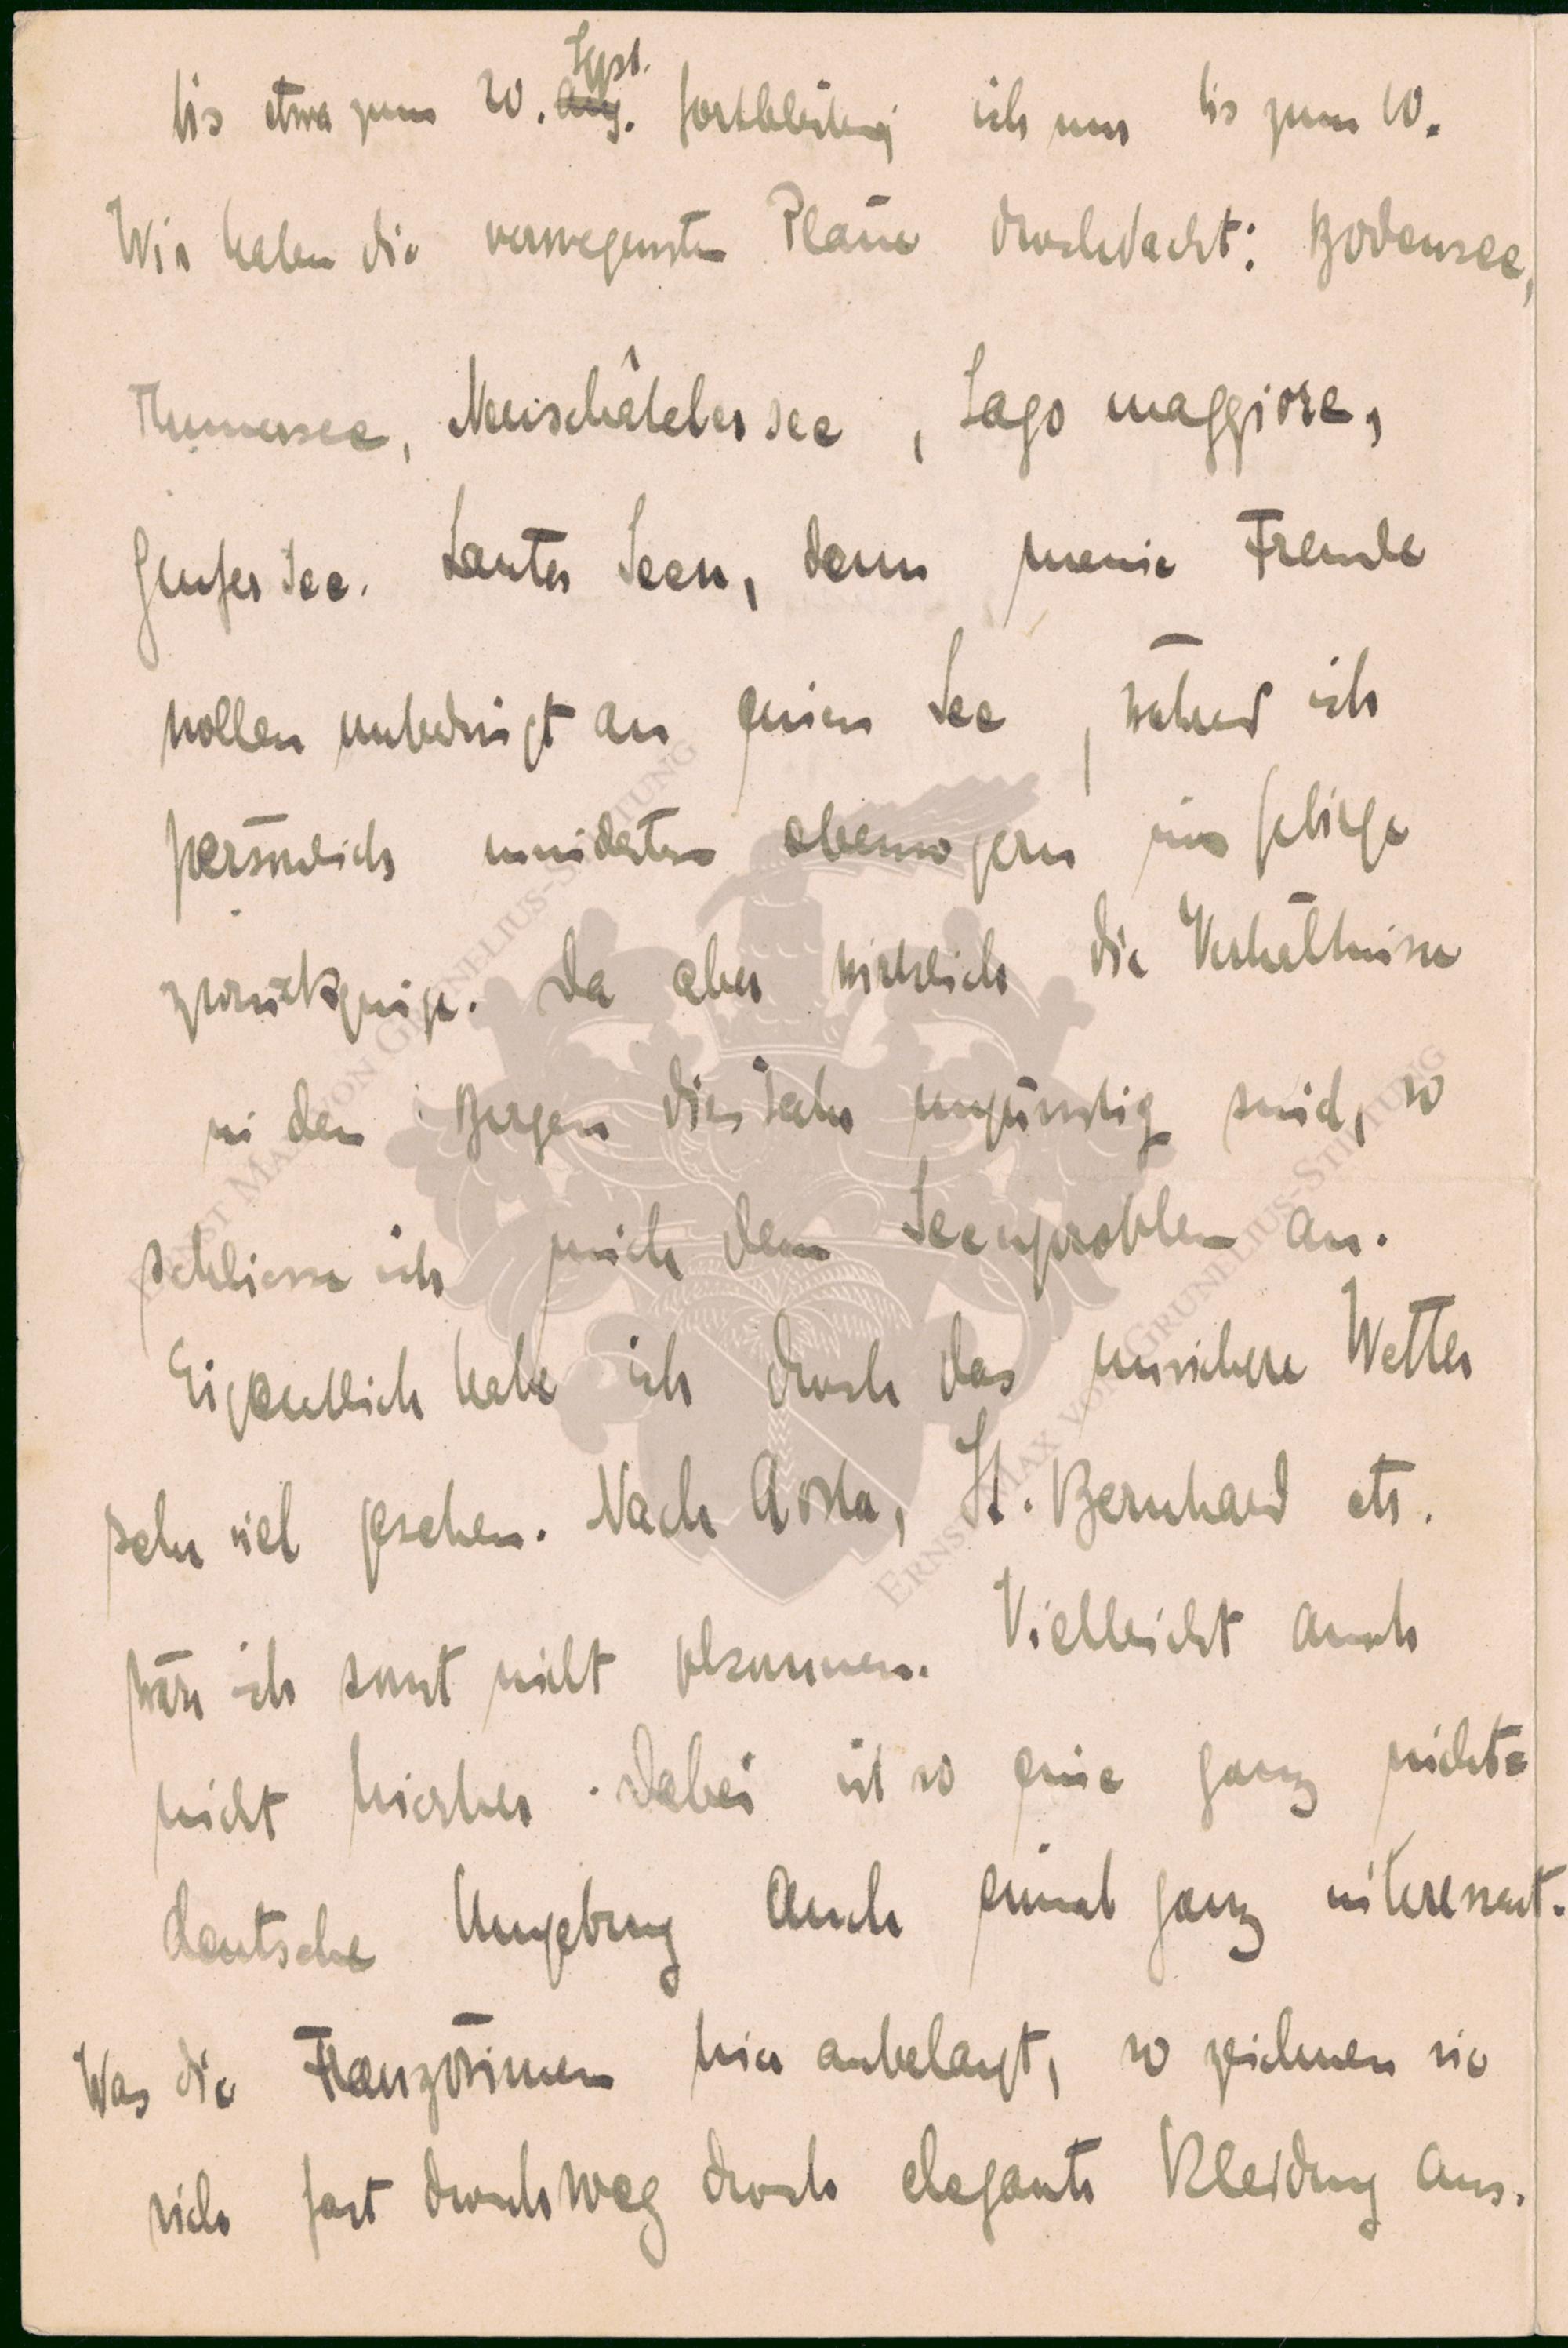 bis etwa zum 20. Aug. Sept. fortbleiben, ich nur bis zum 10.
Wir haben die verwegensten Pläne durchdacht: Bodensee,
Thunersee, Neuschâteler see, Lago maggiore,
Genfer See. Lauter Seen, denn meine Freunde
wollen unbedingt an einen See, während ich
persönlich mindestens ebenso gern ins Gebirge
zurückginge. Da aber wirklich die Verhältnisse
in den Bergen dies Jahr ungünstig sind, so
schliesse ich mich dem Seenproblem an.
Eigentlich habe ich durch das unsichere Wetter
sehr viel gesehen. Nach Aosta, St. Bernhard etc.
wäre ich sonst nicht gekommen. Vielleicht auch
nicht hierher. Dabei ist so eine ganz nicht=
deutsche Umgebung auch einmal ganz interessant.
Was die Französinnen hier anbelangt, so zeichnen sie
sich fast durchweg durch elegante Kleidung aus.
ERNST MAX VON GRUNELIUS-STIFTUNG
ERNST MAX VON GRUNELIUS-STIFTUNG